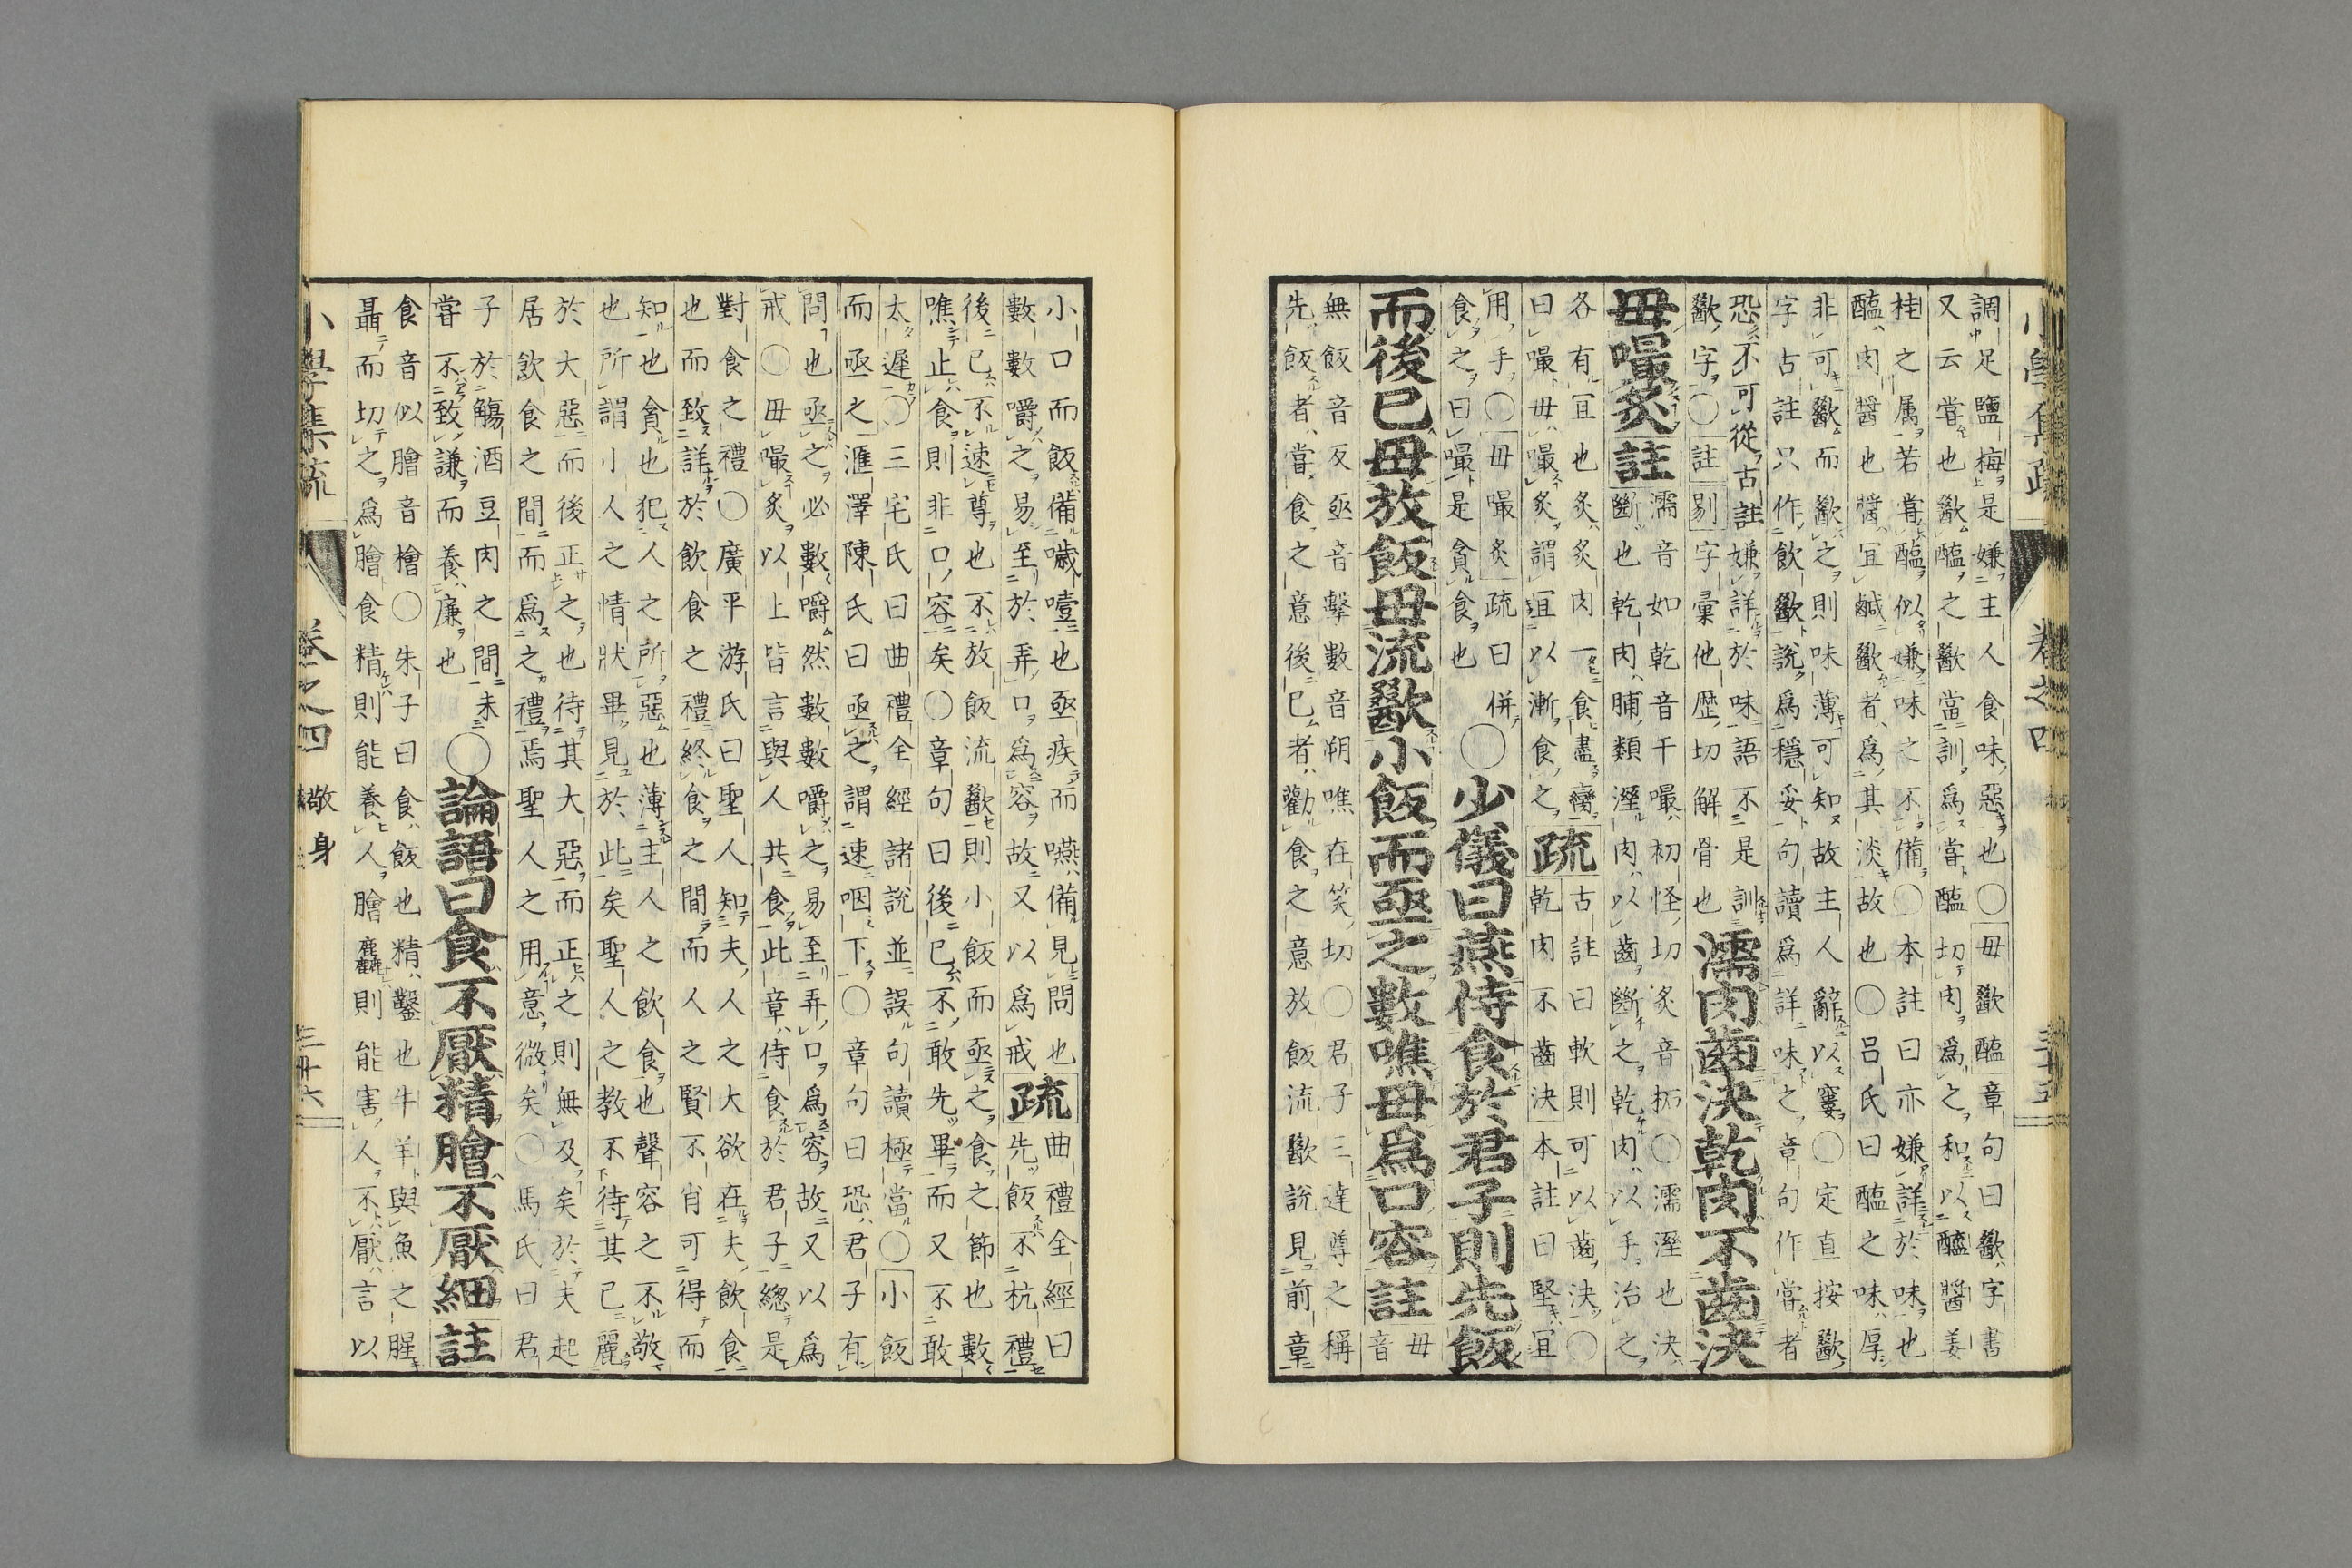 調足鹽梅是嫌主人食味惡也〇毋歠醢章句曰歠字書
又云嘗也歠醢之歠當訓爲嘗醢切肉爲之和以醯醬姜
桂之属若嘗醢似嫌味之不備〇本註曰亦嫌詳於味也
醢肉醤也醤宜鹹歠者爲其淡故也〇呂氏曰醢之味厚
非可歠而歠之則味薄可知故主人辭以窶〇定直按歠
字古註只作飲歠説爲穩妥句讀爲詳味之章句作嘗者
恐不可從古註嫌詳於味語不是訓
歠字〇註剔字彙他歴切解骨也
濡肉齒決乾肉不齒決
毋嘬炙註
濡音如乾音干嘬初怪切炙音柘〇濡溼也決
斷也乾肉脯類溼肉以齒斷之乾肉以手治之
各有宜也炙炙肉一食盡臠
曰嘬毋嘬炙謂宜以漸食之
疏
古註曰軟則可以齒決〇
乾肉不齒決本註曰堅宜
用手〇毋嘬炙疏曰併
食之曰嘬是貪食也
〇少儀曰燕侍食於君子則先飯
而後已毋放飯毋流歠小飯而亟之數噍毋爲口容註
毋
音
無飯音反亟音擊數音朔噍在笑切〇君子三達尊之稱
先飯者嘗食之意後已者勸食之意放飯流歠説見前章
小口而飯備噦噎也亟疾而嚥備見問也
數數嚼之易至於弄口爲容故又以爲戒
疏
曲禮全經曰
先飯不杭禮
後已不速尊也不放飯流歠則小飯而亟之食之節也數
噍止食則非口容矣〇章句曰後已不敢先畢而又不敢
太遲〇三宅氏曰曲禮全經諸説並誤句讀極當〇小飯
而亟之滙澤陳氏曰亟之謂速咽下〇章句曰恐君子有
問也亟之必數嚼然數數嚼之易至弄口爲容故又以爲
戒〇毋嘬炙以上皆言與人共食此章侍食於君子總是
對食之禮〇廣平游氏曰聖人知夫人之大欲在夫飲食
也而致詳於飲食之禮終食之間而人之賢不肖可得而
知也貪也犯人之所惡也薄主人之飲食也聲容之不敬
也所謂小人之情狀畢見於此矣聖人之教不待其已麗
於大惡而後正之也待其大惡而正之則無及矣於夫起
居飲食之間而爲之禮焉聖人之用意微矣〇馬氏曰君
子於觴酒豆肉之間未
嘗不致謙而養廉也
〇論語曰食不厭精膾不厭細註
食音似膾音檜〇朱子曰食飯也精鑿也牛羊與魚之腥
聶而切之爲膾食精則能養人膾麤則能害人不厭言以
小學集疏
卷之四
敬身
三十六
小學集疏
卷之四
三十五